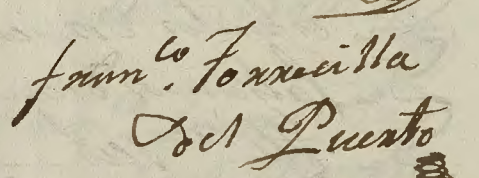 fran.co Torrecilla
Del Puerto